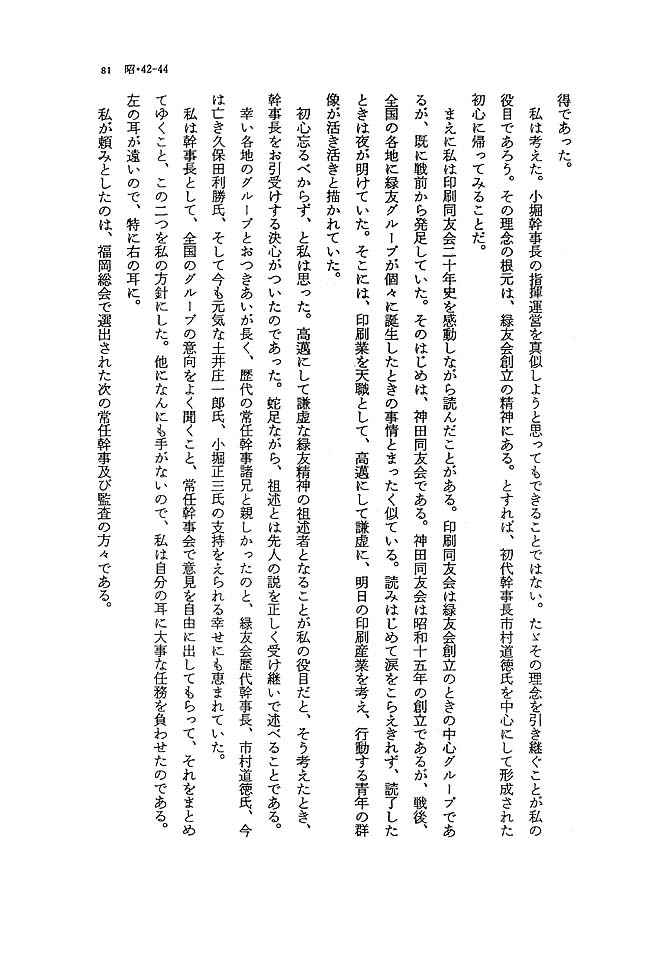 81　昭・42-44
得であった。
　私は考えた。小堀幹事長の指揮運営を真似しようと思ってもできることではない。たゞその理念を引き継ぐことが私の
役目であろう。その理念の根元は、緑友会創立の精神にある。とすれば、初代幹事長市村道徳氏を中心にして形成された
初心に帰ってみることだ。
　まえに私は印刷同友会二十年史を感動しながら読んだことがある。印刷同友会は緑友会創立のときの中心グループであ
るが、既に戦前から発足していた。そのはじめは、神田同友会である。神田同友会は昭和十五年の創立であるが、戦後、
全国の各地に緑友グループが個々に誕生したときの事情とまったく似ている。読みはじめて涙をこらえきれず、読了した
ときは夜が明けていた。そこには、印刷業を天職として、高邁にして謙虚に、明日の印刷産業を考え、行動する青年の群
像が活き活きと描かれていた。
　初心忘るべからず、と私は思った。高邁にして謙虚な緑友精神の祖述者となることが私の役目だと、そう考えたとき、
幹事長をお引受けする決心がついたのであった。蛇足ながら、祖述とは先人の説を正しく受け継いで述べることである。
　幸い各地のグループとおつきあいが長く、歴代の常任幹事諸兄と親しかったのと、緑友会歴代幹事長、市村道徳氏、今
は亡き久保田利勝氏、そして今も元気な土井庄一郎氏、小堀正三氏の支持をえられる幸せにも恵まれていた。
　私は幹事長として、全国のグループの意向をよく聞くこと、常任幹事会で意見を自由に出してもらって、それをまとめ
てゆくこと、この二つを私の方針にした。他になんにも手がないので、私は自分の耳に大事な任務を負わせたのである。
左の耳が遠いので、特に右の耳に。
　私が頼みとしたのは、福岡総会で選出された次の常任幹事及び監査の方々である。